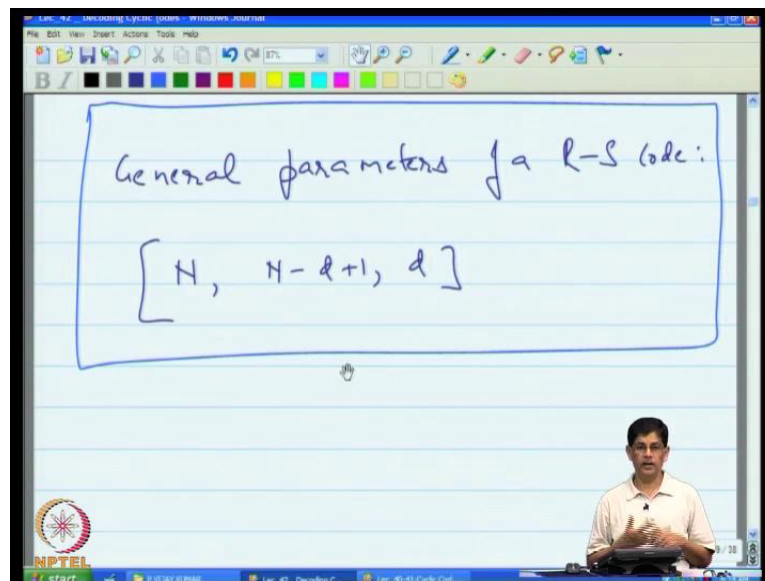 Lec_42 _ Decoding Cyclic Codes - Windows Journal
File Edit View Insert Actions Tools Help
87%
B I
General parameters of a R-S code:
[N, N-d+1, d]
9/38
NPTEL
start
P VIJAY KUMAR
Lec_42_ Decoding C...
Lec 40-41-Cyclic Cod...